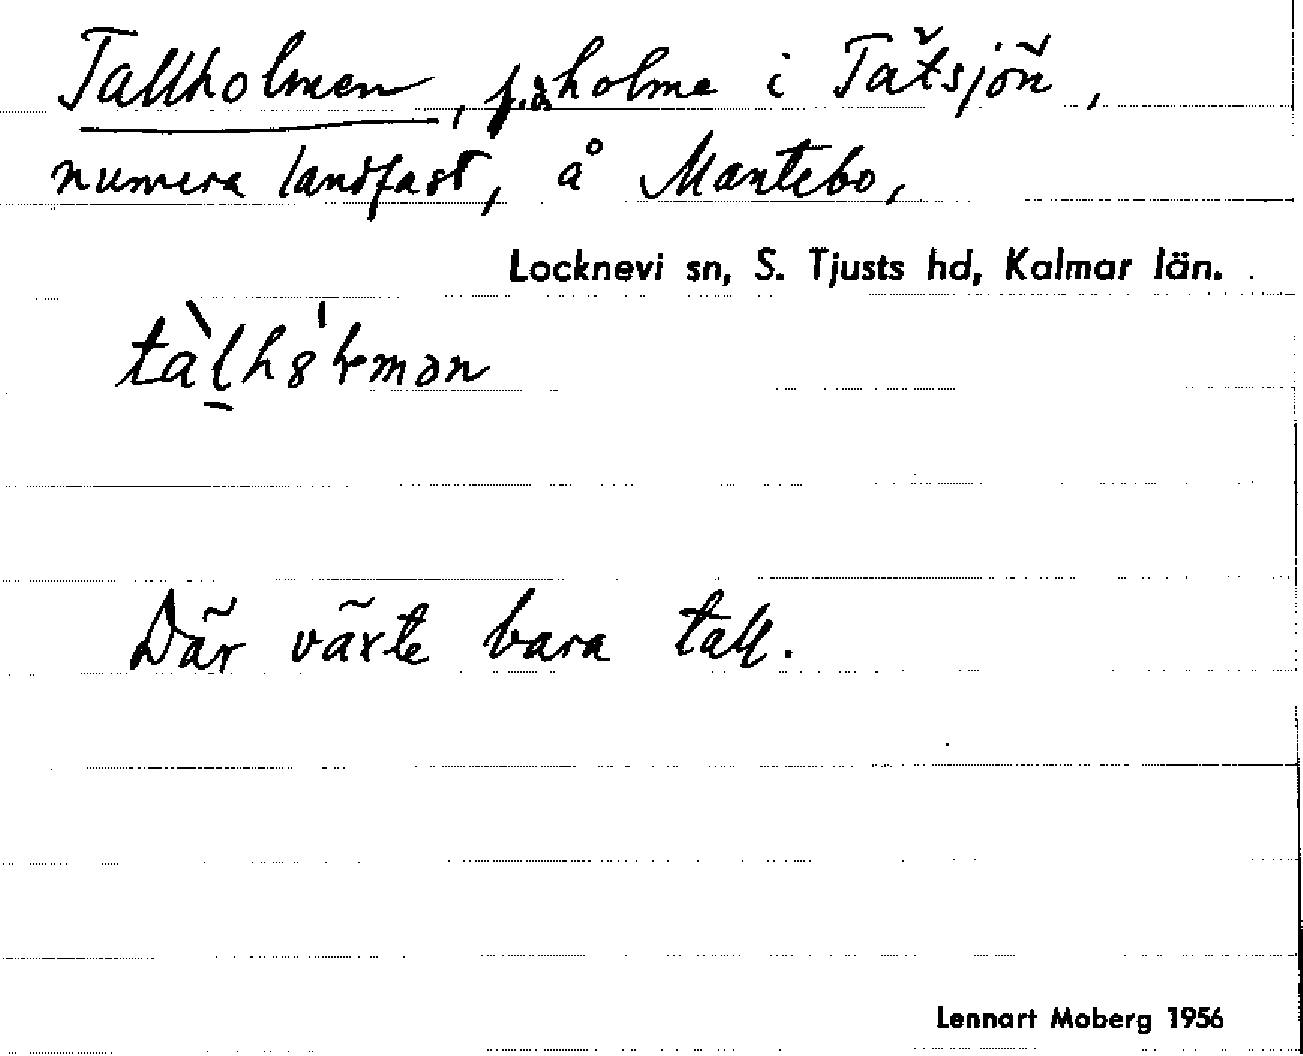 Tallholmen, f.d. holme i Tätsjön,
numera landfast, å Mantebo,
Locknevi sn, S. Tjusts hd, Kalmar län.
Där växte bara tall.
Lennart Moberg 1956